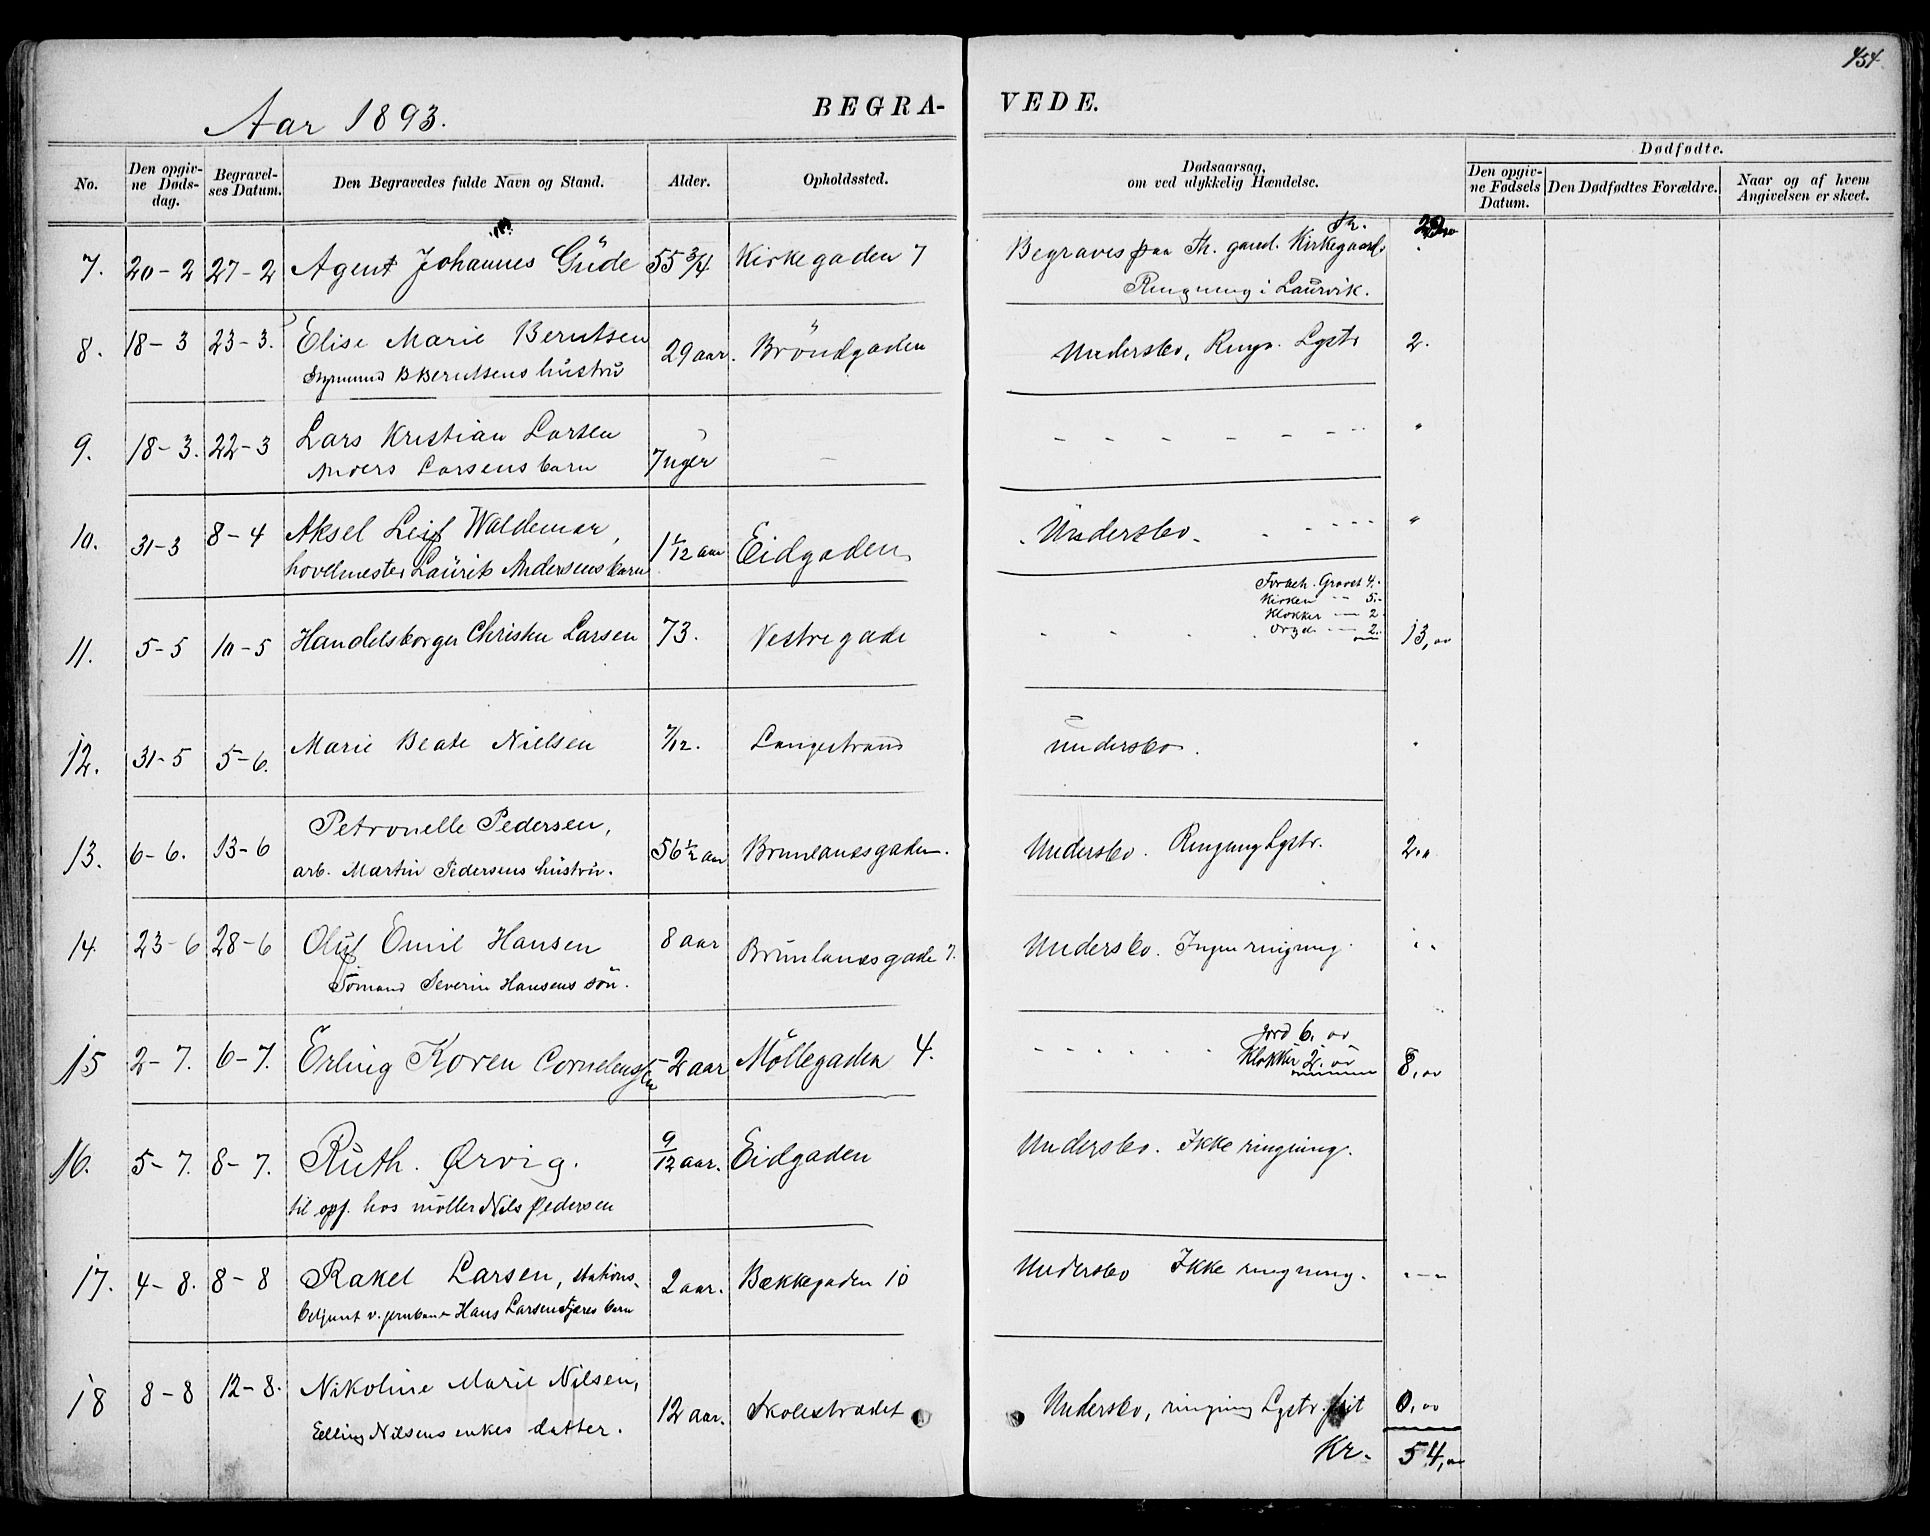 454.
Aar 1893.
BEGRA-
VEDE.
No.
Den opgiv-
ne Døds-
dag.
Begravel-
ses Datum.
Den Begravedes fulde Navn og Stand.
Alder.
Opholdssted.
Dødsaarsag,
om ved ulykkelig Hændelse.
Dødfødte.
Den opgiv-
ne Fødsels
Datum.
Den Dødfødtes Forældre.
Naar og af hvem
Angivelsen er skeet.
7. 20-2 27-2 Agent Johannes Gude 55 3/4 Kirkegaden 7 Begraves paa Th. gaml. Kirkegaard.
Ringning i Laurvik.
8. 18-3 23-3. Elise Marie Berntsen 29 aar. Bröndgaden Undersbo, Ringn. Lystr 2.
Styrmand B Berntsens hustru
9. 18-3. 22-3 Lars Kristian Larsen 7 uger — - - - - - - - "
Anders Larsens barn
10. 31-3 8-4 Aksel Leif Waldemar, 1 1/12 aar Eidgaden Undersbo. - - - - "
hovelmester Laurits Andersens barn
Gravst 4.-
Kirken " " 5.-
Klokker — 2
Orgel — 2.
11. 5-5 10-5 Handelsborger Christen Larsen 73. Vestregade 13,00
12. 31-5 5-6. Marie Beate Nielsen 7/12. Langestrand undersbo.
13. 6-6. 13-6 Petronelle Pedersen, 56 1/2 aar Brunlanæsgaden. Undersbo. Ringning Lystr. 2.,,
arb. Martin Pedersens hustru.
14 23-6 28-6 Oluf Emil Hansen 8 aar Brunlanæsgade 7. Undersbo. Ingen ringning.
Sömand Severin Hansens sön.
Jord 6. 00
Klokker 2. 00
15 2-7. 6-7. Erling Koren Cornelenssen 2 aar Möllegaden 4. 8,00
16. 5-7. 8-7. Ruth. Ørvig. 9/12 aar. Eidgaden Undersbo. Ikke ringning.
til opf. hos möller Nils Pedersen
17. 4-8. 8-8 Rakel Larsen, stations- 2 aar. Bækkegaden 10 Undersbo Ikke ringning. - - -
betjent v. jernbanen Hans Larsen barn
18 8-8 12-8. Nikoline Marie Nilsen, 12 aar. Skolestrædet Undersbo, ringning Lystr. frit 0,00
Elling Nilsens enkes datter.
Kr. 54,00